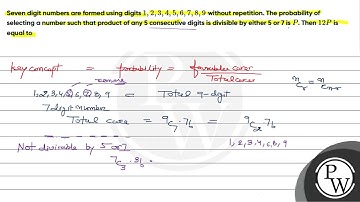 Seven digit numbers are formed using digits 1, 2, 3, 4, 5, 6, 7, 8, 9 without repetition. The probability of
selecting a number such that product of any 5 consecutive digits is divisible by either 5 or 7 is P. Then 12P is
equal to
Key concept = Probability = favourable cases
Total cases
1, 2, 3, 4, 5, 6, 7, 8, 9 Total 9-digit
7 digit number
nCr = nCn-r
Total case = 9C7 · 7! = 9C2 7!
Not divisible by 5 or 7
1, 2, 3, 4, 6, 8, 9
7C
PW